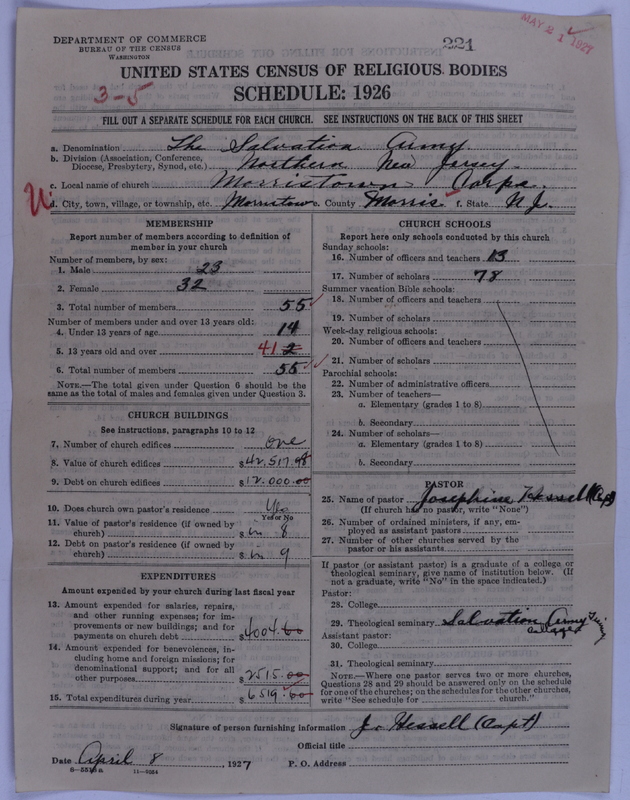 DEPARTMENT OF COMMERCE
BUREAU OF THE CENSUS
WASHINGTON
221
MAY 21 1927
UNITED STATES CENSUS OF RELIGIOUS BODIES
3-5
SCHEDULE: 1926
FILL OUT A SEPARATE SCHEDULE FOR EACH CHURCH. SEE INSTRUCTIONS ON THE BACK OF THIS SHEET
a. Denomination The Salvation Army
b. Division (Association, Conference, Diocese, Presbytery, Synod, etc.) Northern New Jersey
c. Local name of church Morristown Corps.
d. City, town, village, or township, etc. Morristown e. County Morris f. State N.J.
MEMBERSHIP
Report number of members according to definition of
member in your church
Number of members, by sex:
1. Male 23
2. Female 32
3. Total number of members 55
Number of members under and over 13 years old:
4. Under 13 years of age 14
5. 13 years old and over 41 2
6. Total number of members 55
NOTE.—The total given under Question 6 should be the
same as the total of males and females given under Question 3.
CHURCH BUILDINGS
See instructions, paragraphs 10 to 12
7. Number of church edifices one
8. Value of church edifices $42.517.98
9. Debt on church edifices $12.000.00
10. Does church own pastor's residence? Yes
Yes or No
11. Value of pastor's residence (if owned by
church) $ in 8
12. Debt on pastor's residence (if owned by
church) $ in 9
EXPENDITURES
Amount expended by your church during last fiscal year
13. Amount expended for salaries, repairs,
and other running expenses; for im-
provements or new buildings; and for
payments on church debt $4004.00
14. Amount expended for benevolences, in-
cluding home and foreign missions; for
denominational support; and for all
other purposes $2515.00
15. Total expenditures during year $6519.00
CHURCH SCHOOLS
Report here only schools conducted by this church
Sunday schools:
16. Number of officers and teachers 13
17. Number of scholars 78
Summer vacation Bible schools:
18. Number of officers and teachers
19. Number of scholars
Week-day religious schools:
20. Number of officers and teachers
21. Number of scholars
Parochial schools:
22. Number of administrative officers
23. Number of teachers—
a. Elementary (grades 1 to 8)
b. Secondary
24. Number of scholars—
a. Elementary (grades 1 to 8)
b. Secondary
PASTOR
25. Name of pastor Josephine Hessell (Capt)
(If church has no pastor, write "None")
26. Number of ordained ministers, if any, em-
ployed as assistant pastors
27. Number of other churches served by the
pastor or his assistants
If pastor (or assistant pastor) is a graduate of a college or
theological seminary, give name of institution below. (If
not a graduate, write "No" in the space indicated.)
Pastor:
28. College
29. Theological seminary Salvation Army Training
College
Assistant pastor:
30. College
31. Theological seminary
NOTE.—Where one pastor serves two or more churches,
Questions 28 and 29 should be answered only on the schedule
for one of the churches; on the schedules for the other churches,
write "See schedule for ........ church."
Signature of person furnishing information Jo Hessell (Capt)
Official title
Date April 8 1927 P. O. Address
11—9034